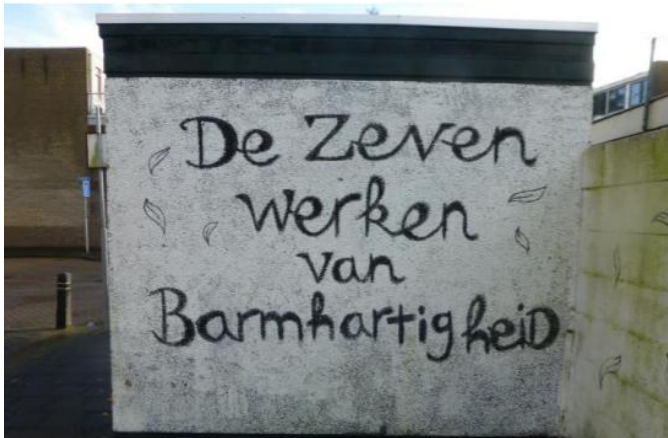 De Zeven
werken
van
BarmhartigheiD